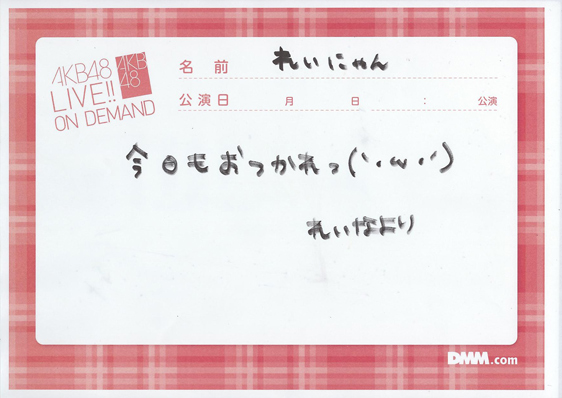 AKB48
LIVE!!
ON DEMAND
AKB
48
名前 れいにゃん
公演日 月 日 : 公演
今日もおつかれっ(`・ω・´)
れいなより
DMM.com